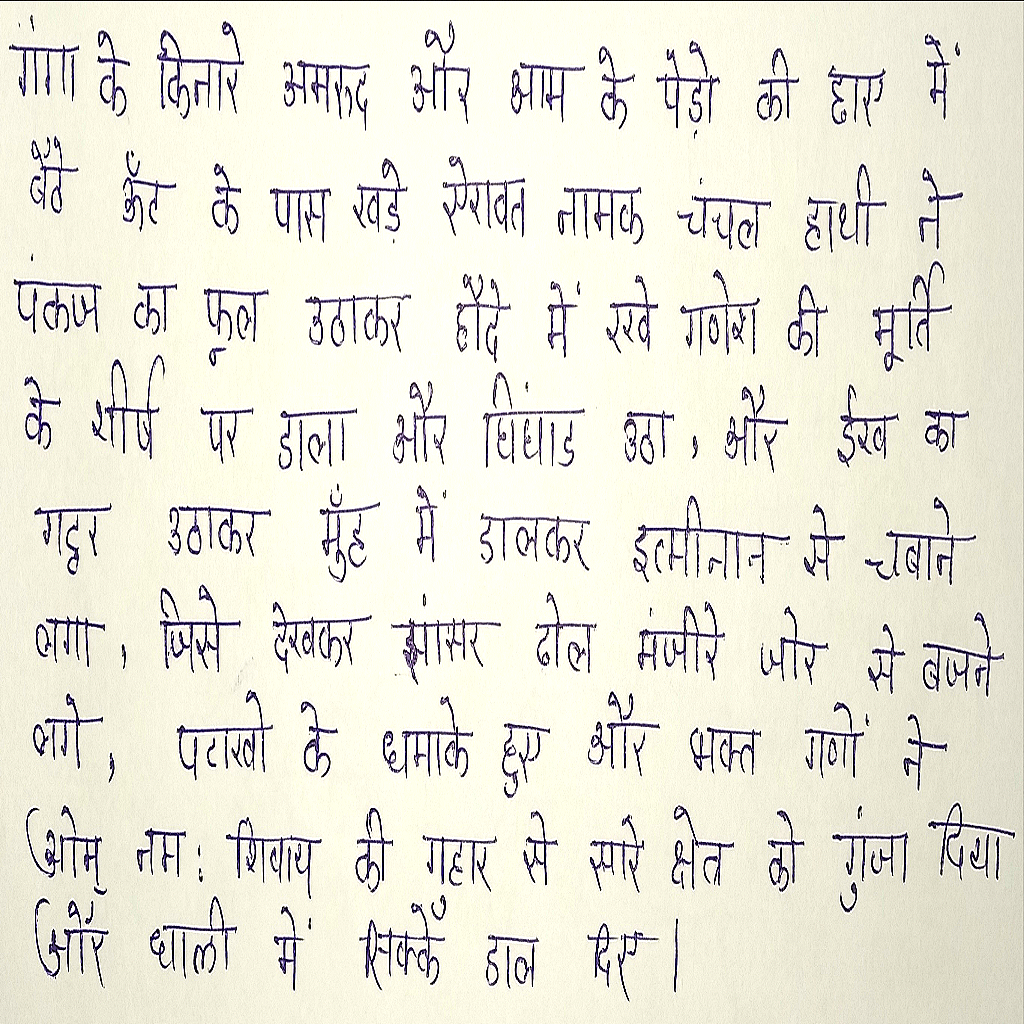 गंगा के किनारे अमरुद और आम के पेड़ो की छाए में
बैठे ऊँट के पास खड़े ऐरावत नामक चंचल हाथी ने
पंकज का फूल उठाकर हौदे में रखे गणेश की मूर्ति
के शीर्ष पर डाला और चिंघाड उठा, और ईख का
गट्ठर उठाकर मुँह में डालकर इत्मीनान से चबाने
लगा, जिसे देखकर झांसर ढोल मंजीरे जोर से बजने
लगे, पटाखो के धमाके हुए और भक्त गणों ने
ओम् नमः शिवाय की गुहार से सारे क्षेत्र को गुंजा दिया
और थाली में सिक्कें डाल दिए।